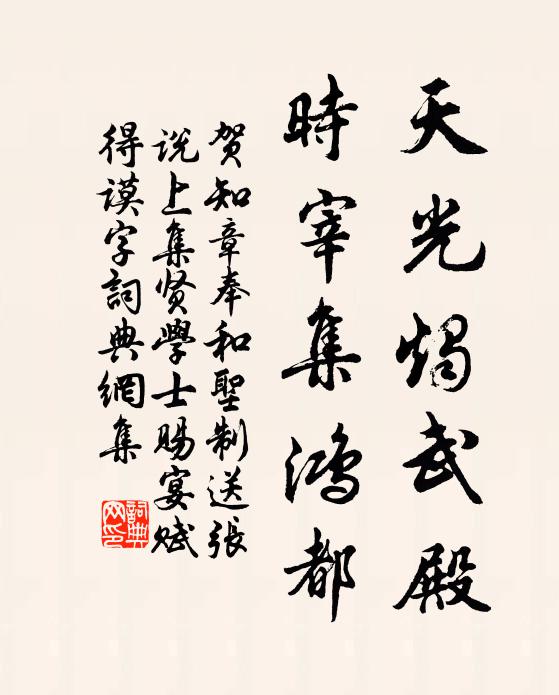 天光燭武殿
時宰集鴻都
贺知章奉和聖制送張
说上集贤學士賜宴賦
得谟字詞典網集
詞典
网印